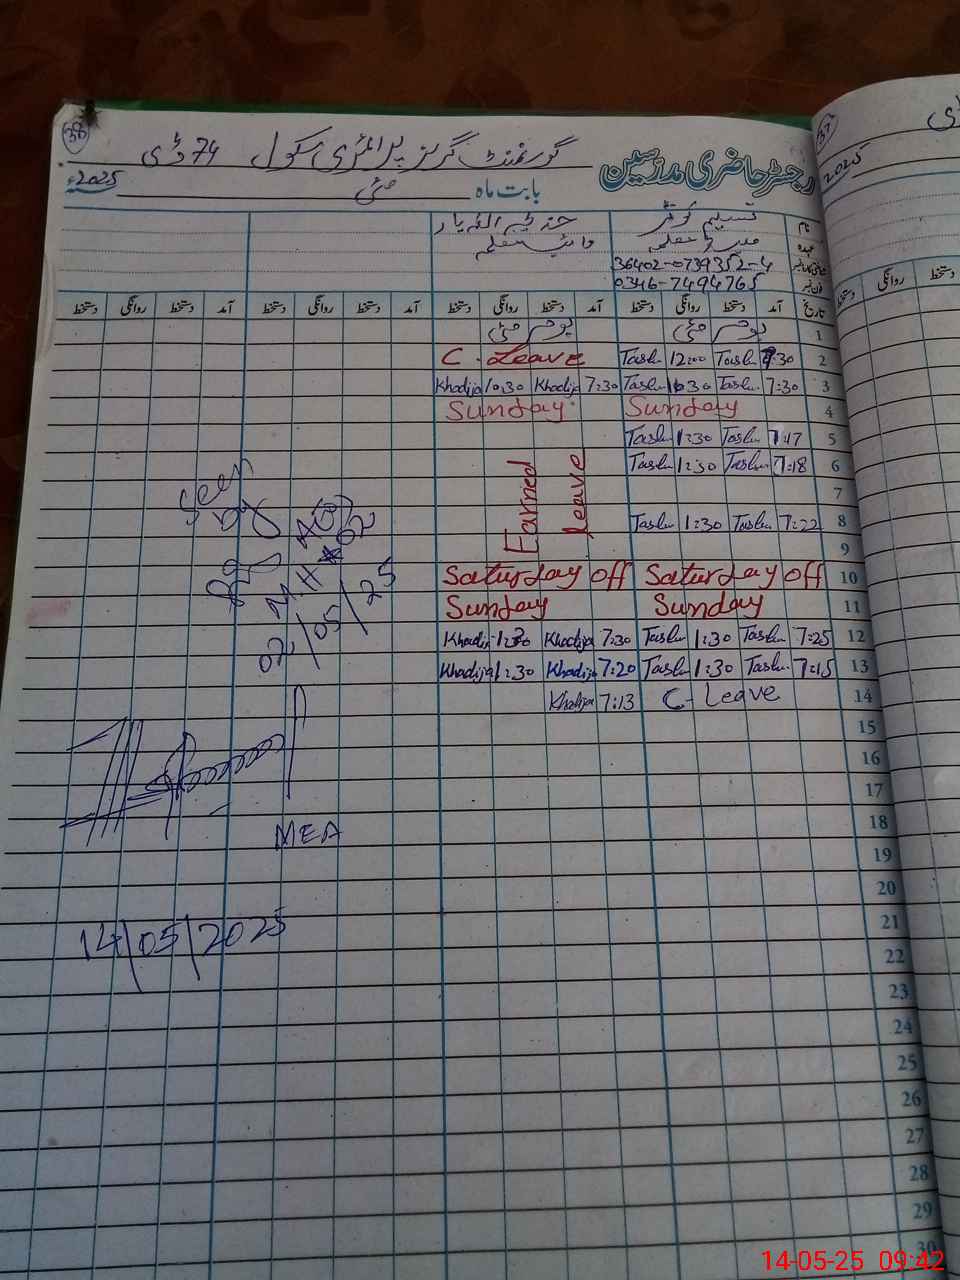 38
گورنمنٹ گرلز پرائمری سکول 74 ڈی
رجسٹر حاضری مدرسین
بابت ماہ مئی 2025ء
2025
نام تسلیم کوثر
عہدہ معلمہ
36402-0739352-4
0346-7494765
تاریخ آمد دستخط روانگی دستخط آمد دستخط روانگی دستخط آمد دستخط روانگی دستخط
روانگی دستخط
1 یوم مئی یوم مئی
C. Leave Taslm 12:00 Taslm 7:30 2
Khadija 10:30 Khadija 7:30 Taslm 10:30 Taslm 7:30 3
Sunday Sunday 4
Taslm 1:30 Taslm 7:17 5
Taslm 1:30 Taslm 7:18 6
Earned Leave
7
Taslm 1:30 Taslm 7:22 8
9
Saturday off Saturday off 10
Sunday Sunday 11
Khadija 1:30 Khadija 7:30 Taslm 1:30 Taslm 7:25 12
Khadija 1:30 Khadija 7:20 Taslm 1:30 Taslm 7:15 13
Khadija 7:13 C- Leave 14
15
16
17
18
19
20
21
22
23
24
25
26
27
28
29
30
Seen
by
02/05/25
MEA
14/05/2025
14-05-25 09:42